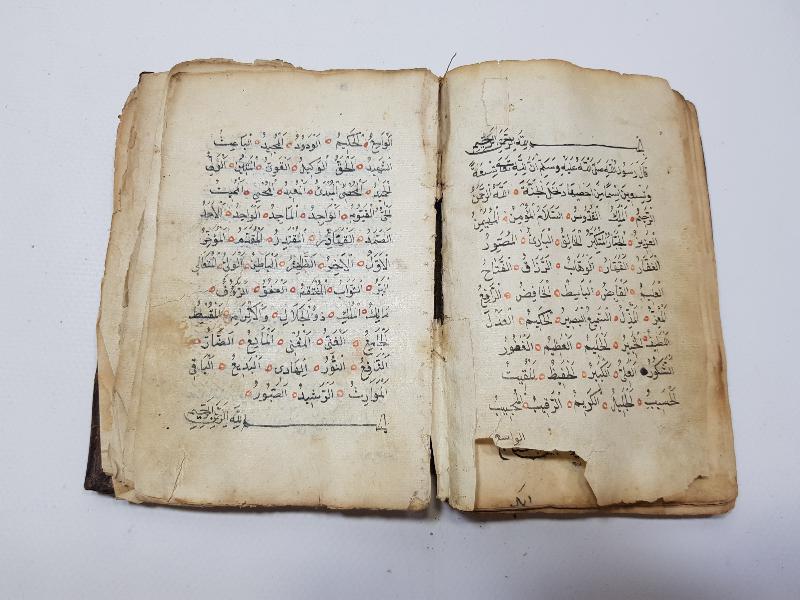 بسم الله الرحمن الرحيم
قال رسول الله صلى الله عليه وسلم ان لله تعالى تسعة
وتسعين اسما من احصاها دخل الجنة الله الرحمن
الرحيم الملك القدوس السلام المؤمن المهيمن
العزيز الجبار المتكبر الخالق البارئ المصور
الغفار القهار الوهاب الرزاق الفتاح
العليم القابض الباسط الخافض الرافع
المعز المذل السميع البصير الحكيم العدل
اللطيف الخبير الحليم العظيم الغفور
الشكور العلي الكبير الحفيظ المقيت
الحسيب الجليل الكريم الرقيب المجيب
الواسع
الواسع الحكيم الودود المجيد الباعث
الشهيد الحق الوكيل القوي المتين الولي
الحميد المحصي المبدئ المعيد المحيي المميت
الحي القيوم الواجد الماجد الواحد الاحد
الصمد القادر المقتدر المقدم المؤخر
الاول الاخر الظاهر الباطن الوالي المتعالي
البر التواب المنتقم العفو الرؤف
مالك الملك ذو الجلال والاكرام المقسط
الجامع الغني المغني المانع الضار
النافع النور الهادي البديع الباقي
الوارث الرشيد الصبور
بسم الله الرحمن الرحيم